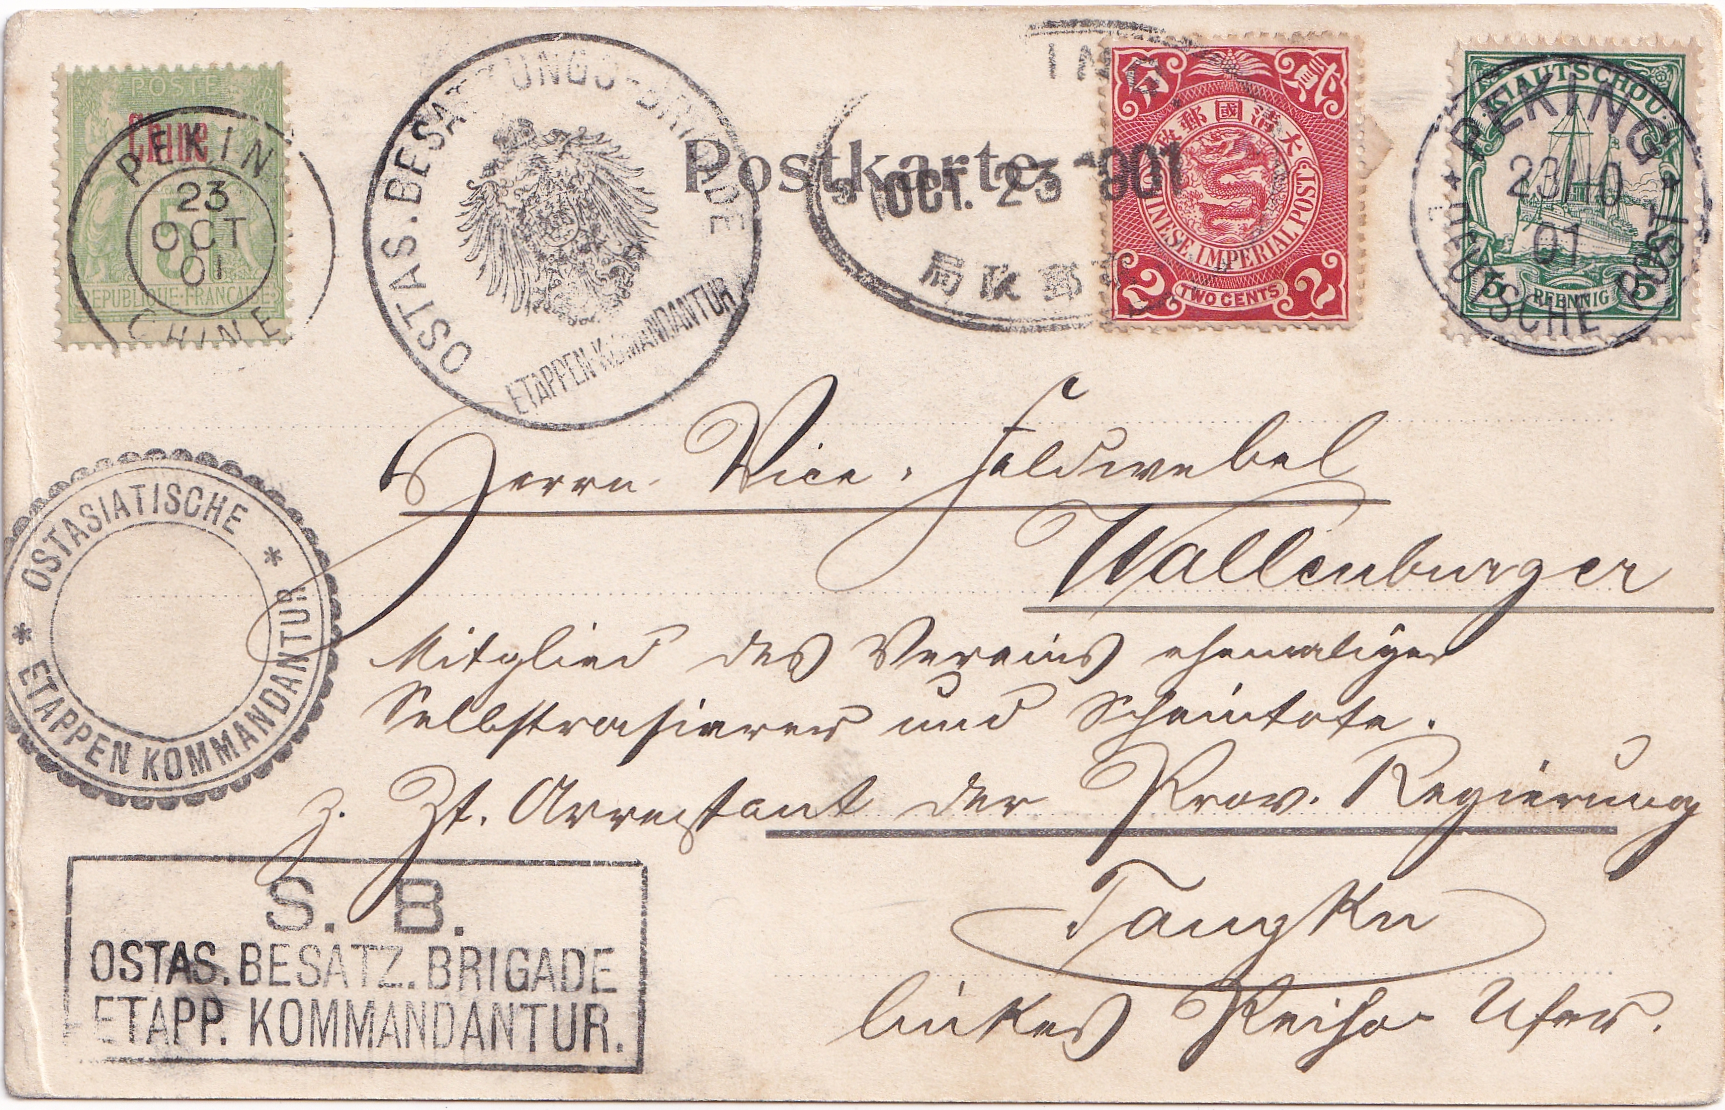 POSTE
Chine
5
REPUBLIQUE FRANCAISE
PEKIN
23
OCT
01
CHINE
OSTAS. BESATZUNGS-BRIGADE
ETAPPEN-KOMMANDANTUR
Postkarte
OCT. 23 1901
局政郵
大清國郵政
貳分
CHINESE IMPERIAL POST
2 TWO CENTS 2
KIAUTSCHOU
5 PFENNIG 5
PEKING
23/10
01
DEUTSCHE POST
Herrn Vice-Feldwebel
Wallenburger
Mitglied des Vereins ehemaliger
Selbstrasierer und Scheintote.
z. Zt. Arrestant der Prov. Regierung
Tangku
linkes Peiho-Ufer.
* OSTASIATISCHE *
ETAPPEN KOMMANDANTUR
S. B.
OSTAS. BESATZ. BRIGADE
ETAPP. KOMMANDANTUR.